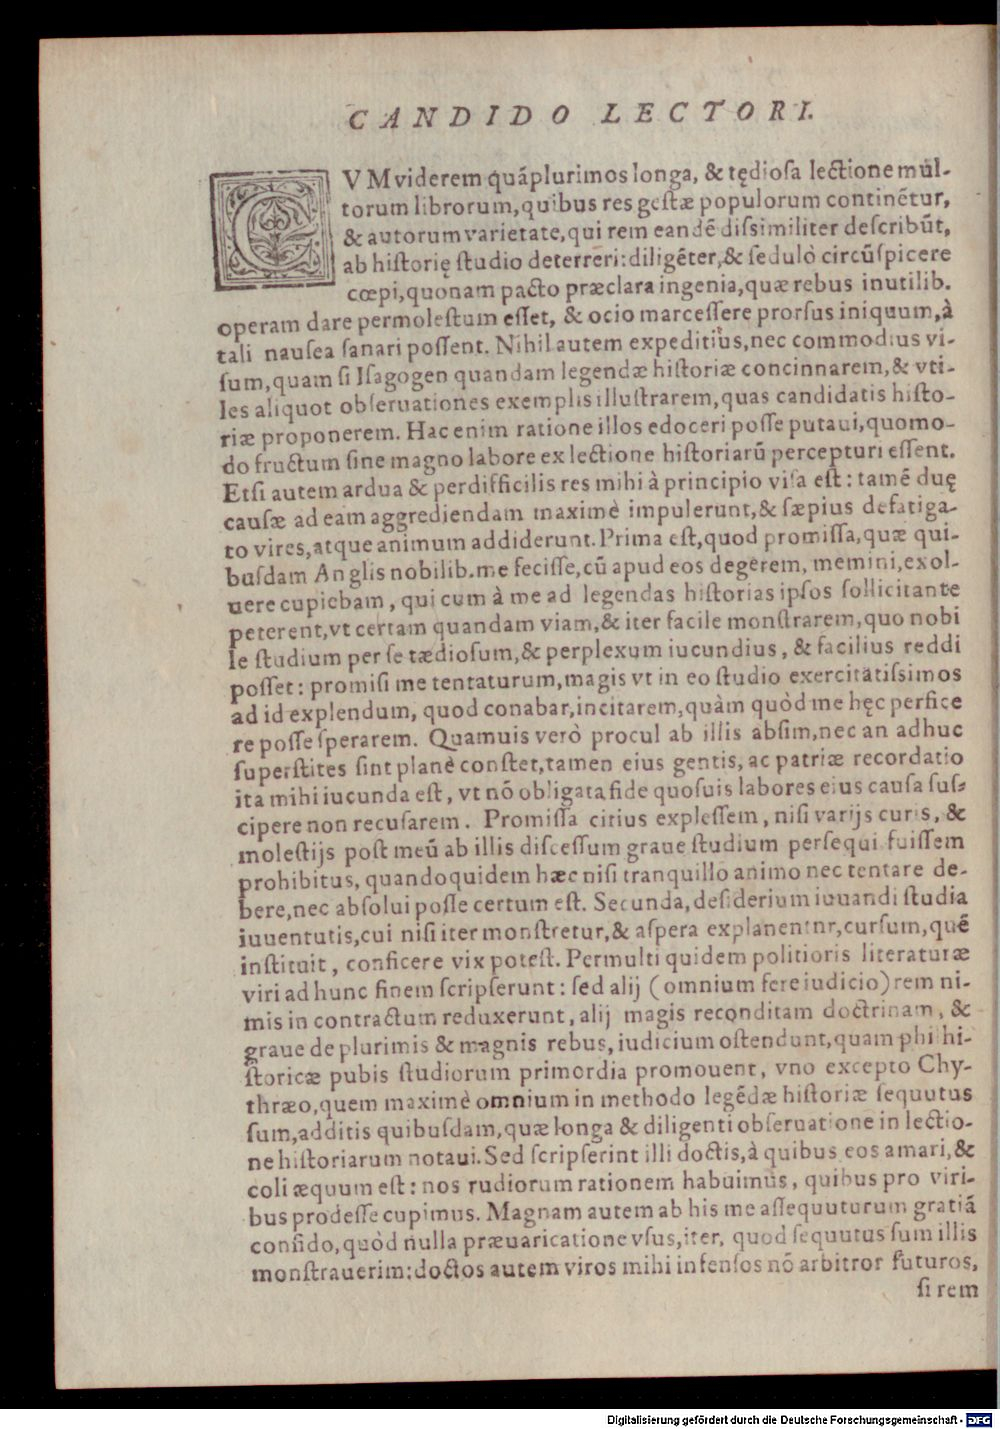 CANDIDO LECTORI.
CVM viderem quã plurimos longa, & tędiosa lectione mul-
torum librorum, quibus res gestæ populorum continẽtur,
& autorum varietate, qui rem eandẽ dissimiliter describũt,
ab historię studio deterreri: diligẽter, & sedulò circũspicere
cœpi, quonam pacto præclara ingenia, quæ rebus inutilib.
operam dare permolestum esset, & ocio marcessere prorsus iniquum, à
tali nausea sanari possent. Nihil autem expeditiùs, nec commodius vi-
sum, quam si Isagogen quandam legendæ historiæ concinnarem, & vti-
les aliquot obseruationes exemplis illustrarem, quas candidatis histo-
riæ proponerem. Hac enim ratione illos edoceri posse putaui, quomo-
do fructum sine magno labore ex lectione historiarũ percepturi essent.
Etsi autem ardua & perdifficilis res mihi à principio visa est: tamẽ duę
causæ ad eam aggrediendam maximè impulerunt, & sæpius defatiga-
to vires, atque animum addiderunt. Prima est, quod promissa, quæ qui-
busdam Anglis nobilib. me fecisse, cũ apud eos degerem, memini, exol-
uere cupiebam, qui cum à me ad legendas historias ipsos sollicitante
peterent, vt certam quandam viam, & iter facile monstrarem, quo nobi
le studium per se tædiosum, & perplexum iucundius, & facilius reddi
posset: promisi me tentaturum, magis vt in eo studio exercitatissimos
ad id explendum, quod conabar, incitarem, quàm quòd me hęc perfice
re posse sperarem. Quamuis verò procul ab illis absim, nec an adhuc
superstites sint planè constet, tamen eius gentis, ac patriæ recordatio
ita mihi iucunda est, vt nõ obligata fide quosuis labores eius causa sus-
cipere non recusarem. Promissa citius explessem, nisi varijs curis, &
molestijs post meũ ab illis discessum graue studium persequi fuissem
prohibitus, quandoquidem hæc nisi tranquillo animo nec tentare de-
bere, nec absolui posse certum est. Secunda, desiderium iuuandi studia
iuuentutis, cui nisi iter monstretur, & aspera explanentnr, cursum, quẽ
instituit, conficere vix potest. Permulti quidem politioris literaturæ
viri ad hunc finem scripserunt: sed alij (omnium fere iudicio) rem ni-
mis in contractum reduxerunt, alij magis reconditam doctrinam, &
graue de plurimis & magnis rebus, iudicium ostendunt, quam phi hi-
storicæ pubis studiorum primordia promouent, vno excepto Chy-
thræo, quem maximè omnium in methodo legẽdæ historiæ sequutus
sum, additis quibusdam, quæ longa & diligenti obseruatione in lectio-
ne historiarum notaui. Sed scripserint illi doctis, à quibus eos amari, &
coli æquum est: nos rudiorum rationem habuimus, quibus pro viri-
bus prodesse cupimus. Magnam autem ab his me assequuturum gratiã
confido, quòd nulla præuaricatione vsus, iter, quod sequutus sum illis
monstrauerim: doctos autem viros mihi infensos nõ arbitror futuros,
si rem
Digitalisierung gefördert durch die Deutsche Forschungsgemeinschaft - DFG